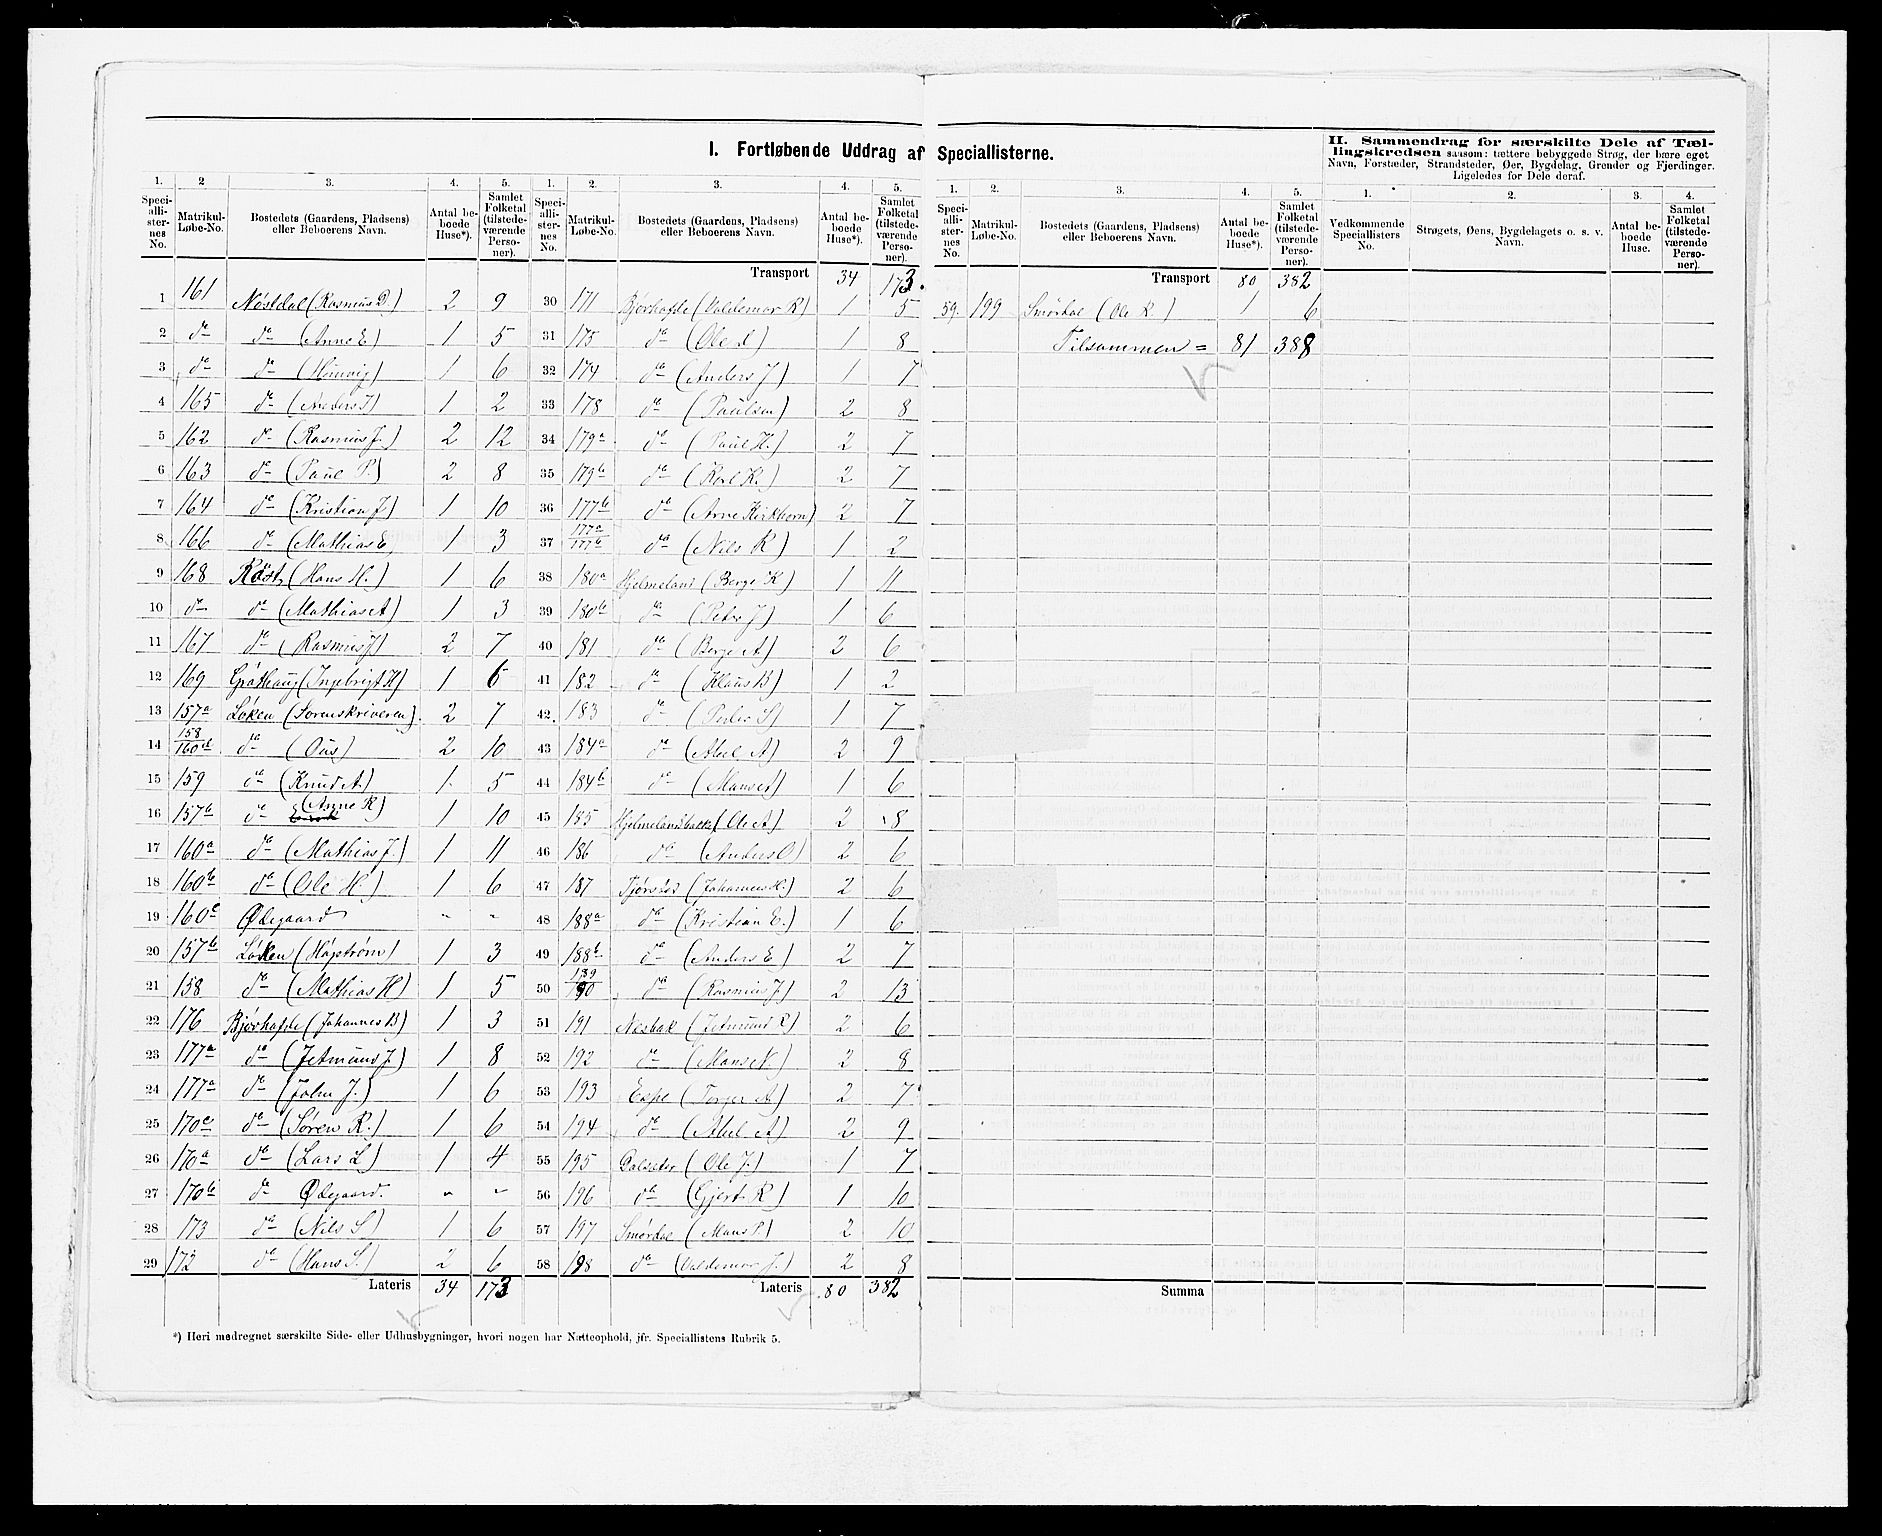 I. Fortløbende Uddrag af Speciallisterne.
II. Sammendrag for særskilte Dele af Tæl-
lingskredsen saasom: tættere bebyggede Strøg, der bære eget
Navn, Forstæder, Strandsteder, Øer, Bygdelag, Grender og Fjerdinger.
Ligeledes for Dele deraf.
1. 2 3. 4. 5. 1. 2. 3. 4. 5. 1. 2. 3. 4. 5. 1. 2. 3. 4.
Speciallisternes No. Matrikul-Løbe-No. Bostedets (Gaardens, Pladsens) eller Beboerens Navn. Antal beboede Huse*). Samlet Folketal (tilstedeværende Personer).
1 161 Nøstdal (Rasmus D.) 2 9
2 do do (Anne E) 1 5
3 do do 1 6
4 165 do (Anders J) 1 2
5 162 do (Rasmus J.) 2 12
6 163 do (Paul P.) 2 8
7 164 do (Kristian J) 1 10
8 166 do (Mathias E) 1 3
9 168 (Hans H.) 1 6
10 do do (Mathias A) 1 3
11 167 do (Rasmus J) 2 7
12 169 (Ingebrigt H) 1 6
13 157a Løken (Sorenskriveren). 2 7
14 158/160d do (Ous) 2 10
15 159 do (Knud A) 1 5
16 157b do (Anne K) 1 10
17 160a do (Mathias J.) 1 11
18 160b do (Ole H.) 1 6
19 160c Ødegaard " "
20 157b Løken (Høgstrøm) 1 3
21 158 do (Mathias H) 1 5
22 176 Bjørhafde (Johannes B) 1 3
23 177a do (Jetmund J.) 1 8
24 177a do (John J.) 1 6
25 170c do (Søren R.) 1 6
26 170a do (Lars L) 1 4
27 170b do Ødegaard. " "
28 173 do (Nils S) 1 6
29 172 do (Hans S.) 2 6
Lateris 34 173
Transport 34 173
30 171 Bjørhafde (Valdemar R) 1 5
31 175 do 1 8
32 174 do (Anders J) 1 7
33 178 do (Paulsen) 2 8
34 179a do (Paul H.) 2 7
35 179b do (Karl K.) 2 7
36 177b do (Arne Kirkhorn) 2 7
37 177a/177b do (Nils R) 1 2
38 180a Hjelmeland (Berge K) 1 11
39 180b do (Peter J) 1 6
40 181 do (Berge A) 2 6
41 182 do (Klaus B) 1 2
42. 183 do (Peder S) 1 7
43 184a do (Abel A) 2 9
44 184b do (Mons A) 1 6
45 185 Hjelmelandbakke (Ole A) 2 8
46 186 do (Anders O) 2 6
47 187 (Johannes H.) 2 6
48 188a do (Kristian E.) 1 6
49 188b do (Anders E) 2 7
50 189/190 do (Rasmus J.) 2 13
51 191 Nesbak (Jetmund R) 2 6
52 192 do (Mons N.) 2 8
53 193 Espe (Torger A.) 2 7
54 194 do (Abel A) 2 9
55 195 Dalsæter (Ole J.) 1 7
56 196 do (Gjert R) 1 10
57 197 Smørdal (Mons P.) 2 10
58 198 do (Valdemar J.) 2 8
Lateris 80 382
Transport 80 382
59. 199 Smørdal (Ole R) 1 6
Tilsammen = 81 388
Summa
Vedkommende Speciallisters No. Strøgets, Øens, Bygdelagets o. s. v. Navn. Antal beboede Huse. Samlet Folketal (tilstedeværende Personer).
*) Heri medregnet særskilte Side- eller Udhusbygninger, hvori nogen har Natteophold, jfr. Speciallistens Rubrik 5.